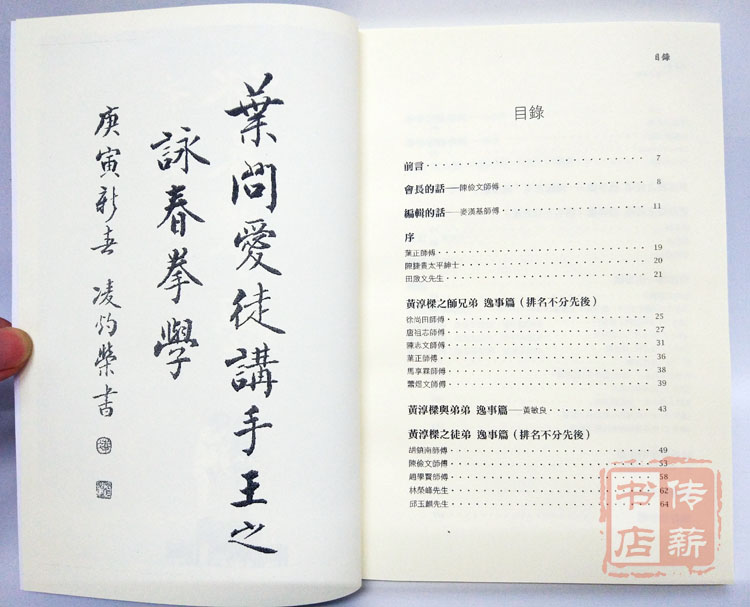 葉問愛徒講手王之
詠春拳學
庚寅新春 凌灼榮書
目錄
目錄
前言 7
會長的話——陳儉文師傅 8
編輯的話——麥漢基師傅 11
序
葉正師傅 19
陳鍊貴太平紳士 20
田激文先生 21
黃淳樑之師兄弟 逸事篇（排名不分先後）
徐尚田師傅 25
唐祖志師傅 27
陳志文師傅 31
葉正師傅 36
馬享霖師傅 38
蕭煜文師傅 39
黃淳樑與弟弟 逸事篇——黃敏良 43
黃淳樑之徒弟 逸事篇（排名不分先後）
胡鎮南師傅 49
陳儉文師傅 53
趙學賢師傅 58
林榮峰先生 62
邱玉麒先生 64
传薪
书店